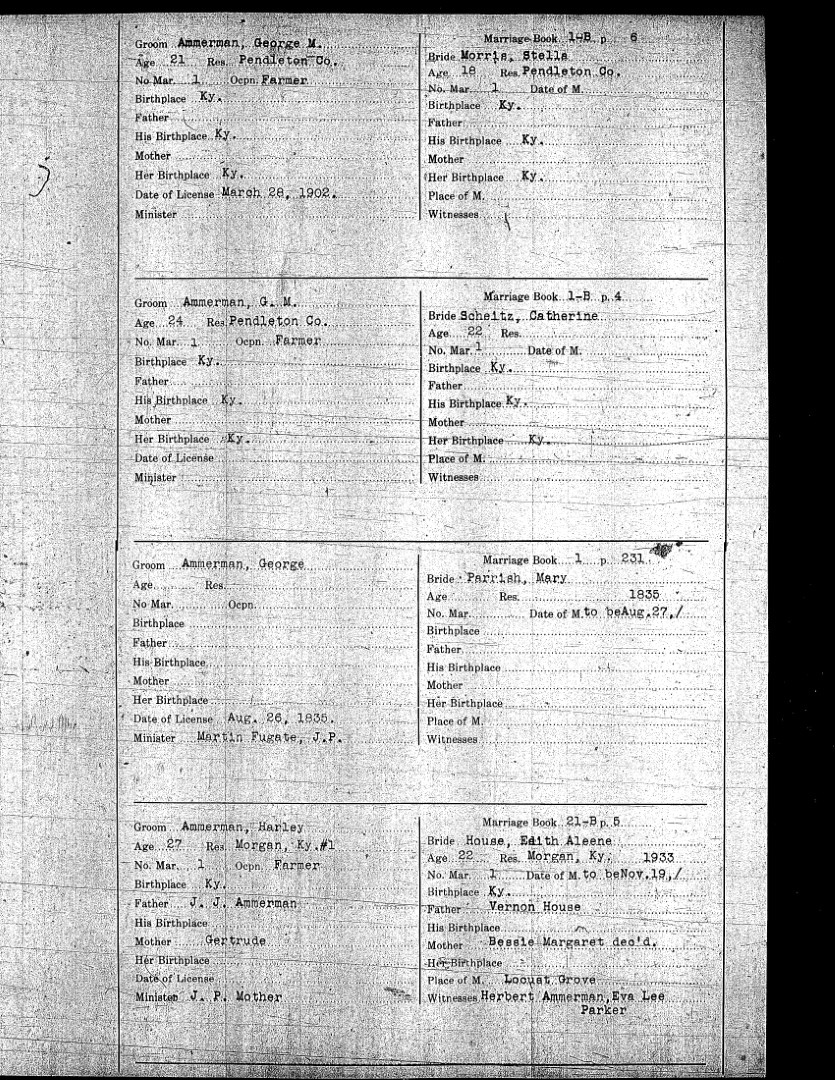 Groom Ammerman, George M.
Age 21 Res. Pendleton Co.
No Mar. 1 Ocpn. Farmer
Birthplace Ky.
Father
His Birthplace Ky.
Mother
Her Birthplace Ky.
Date of License March 28, 1902.
Minister
Marriage Book 1-B p 6
Bride Morris, Stella
Age 18 Res. Pendleton Co.
No. Mar. 1 Date of M.
Birthplace Ky.
Father
His Birthplace Ky.
Mother
Her Birthplace Ky.
Place of M.
Witnesses
Groom Ammerman, G. M.
Age 24 Res. Pendleton Co.
No. Mar. 1 Ocpn. Farmer
Birthplace Ky.
Father
His Birthplace Ky.
Mother
Her Birthplace Ky.
Date of License
Minister
Marriage Book 1-B p. 4
Bride Scheitz, Catherine
Age 22 Res.
No. Mar. 1 Date of M.
Birthplace Ky.
Father
His Birthplace Ky.
Mother
Her Birthplace Ky.
Place of M.
Witnesses
Groom Ammerman, George
Age Res.
No Mar. Ocpn.
Birthplace
Father
His Birthplace
Mother
Her Birthplace
Date of License Aug. 26, 1835.
Minister Martin Fugate, J.P.
Marriage Book 1 p. 231
Bride Parrish, Mary
Age Res. 1835
No. Mar. Date of M. to be Aug. 27,/
Birthplace
Father
His Birthplace
Mother
Her Birthplace
Place of M.
Witnesses
Groom Ammerman, Harley
Age 27 Res. Morgan, Ky.#1
No. Mar. 1 Ocpn. Farmer
Birthplace Ky.
Father J. J. Ammerman
His Birthplace
Mother Gertrude
Her Birthplace
Date of License
Minister J. P. Mother
Marriage Book 21-B p. 5
Bride House, Edith Aleene
Age 22 Res. Morgan, Ky. 1933
No. Mar. 1 Date of M. to be Nov. 19,/
Birthplace Ky.
Father Vernon House
His Birthplace
Mother Bessie Margaret dec'd.
Her Birthplace
Place of M. Locust Grove
Witnesses Herbert Ammerman, Eva Lee
Parker